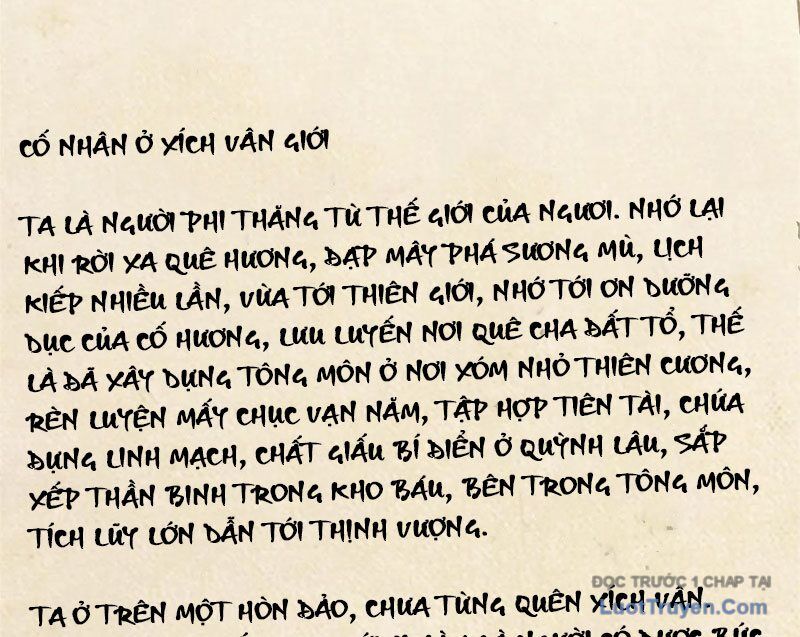 CỐ NHÂN Ở XÍCH VÂN GIỚI
TA LÀ NGƯỜI PHI THĂNG TỪ THẾ GIỚI CỦA NGƯƠI. NHỚ LẠI
KHI RỜI XA QUÊ HƯƠNG, ĐẠP MÂY PHÁ SƯƠNG MÙ, LỊCH
KIẾP NHIỀU LẦN, VỪA TỚI THIÊN GIỚI, NHỚ TỚI ƠN DƯỠNG
DỤC CỦA CỐ HƯƠNG, LƯU LUYẾN NƠI QUÊ CHA ĐẤT TỔ, THẾ
LÀ ĐÃ XÂY DỰNG TÔNG MÔN Ở NƠI XÓM NHỎ THIÊN CƯƠNG,
RÈN LUYỆN MẤY CHỤC VẠN NĂM, TẬP HỢP TIÊN TÀI, CHỨA
DỰNG LINH MẠCH, CHẤT GIẤU BÍ ĐIỂN Ở QUỲNH LÂU, SẮP
XẾP THẦN BINH TRONG KHO BÁU, BÊN TRONG TÔNG MÔN,
TÍCH LŨY LỚN DẪN TỚI THỊNH VƯỢNG.
ĐỌC TRƯỚC 1 CHAP TẠI
TA Ở TRÊN MỘT HÒN ĐẢO, CHƯA TỪNG QUÊN XÍCH VÂN.
LuotTruyen.Com